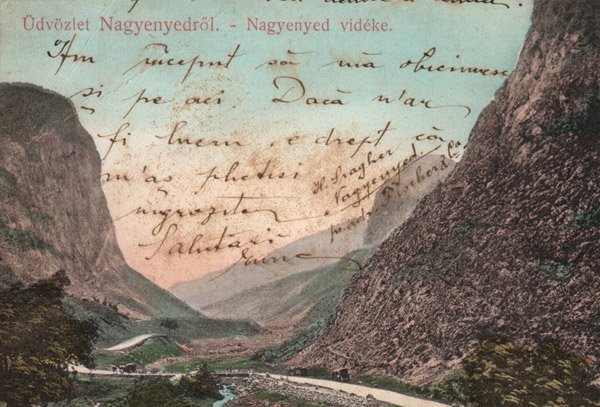 Üdvözlet Nagyenyedről. - Nagyenyed vidéke.
Am început să mă obicinuesc
și pe aci. Dacă n'ar
fi lucru, e drept că
m'aș plictisi
îngrozitor
Salutări
Nagyenyed